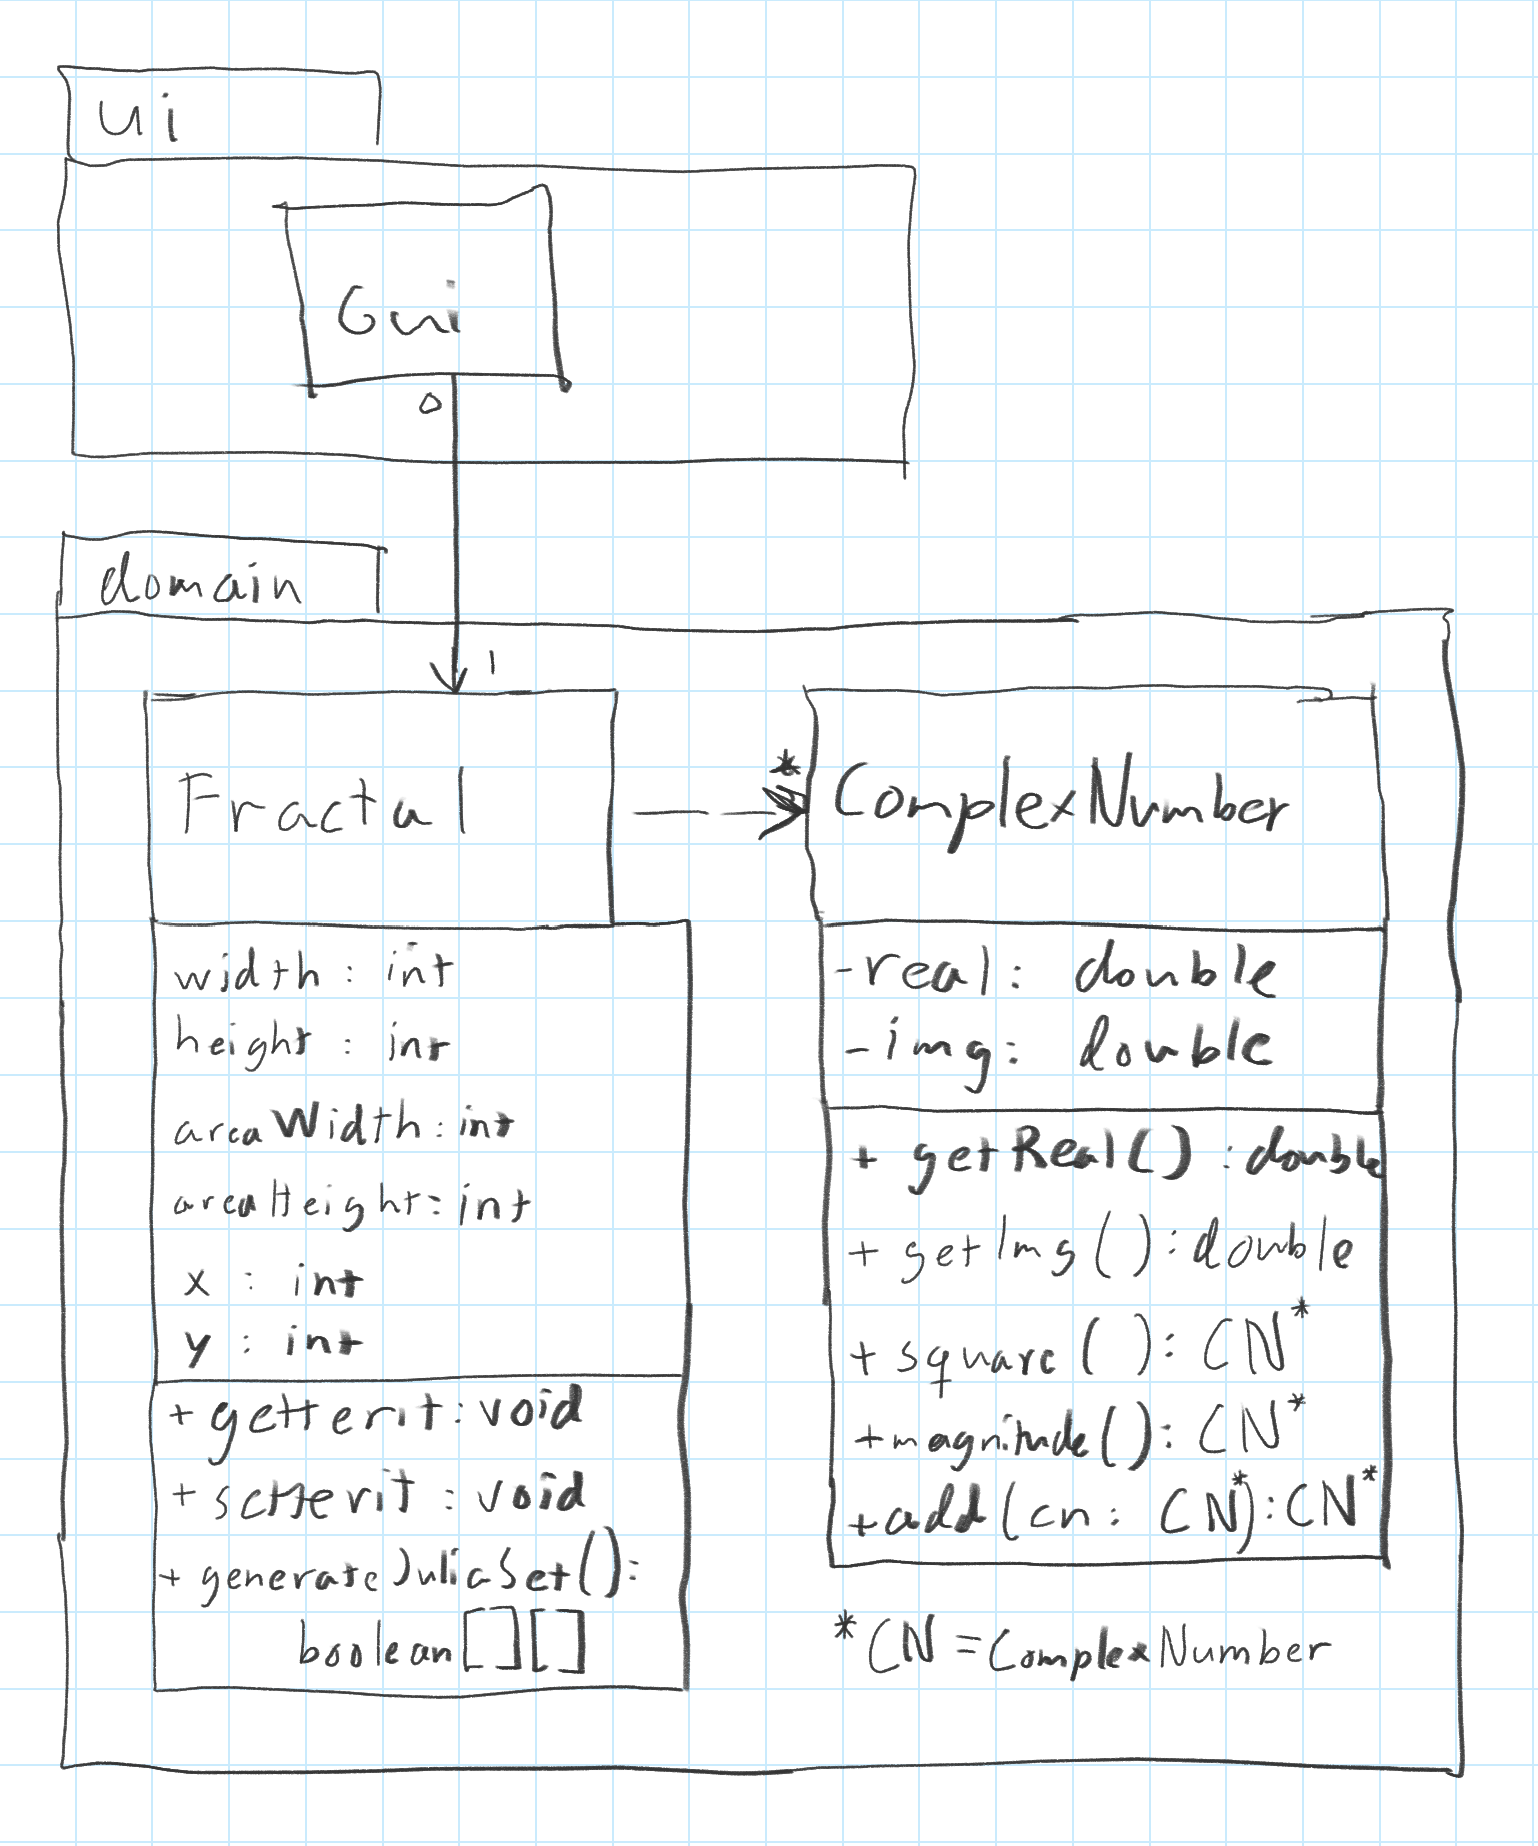 ui
Gui
0
domain
1
Fractal
*
ComplexNumber
width : int
height : int
areaWidth : int
areaHeight : int
x : int
y : int
+ getterit : void
+ setterit : void
+ generateJuliaSet() :
boolean[][]
- real : double
- img : double
+ getReal() : double
+ getImg() : double
+ square() : CN*
+ magnitude() : CN*
+ add(cn : CN*) : CN*
* CN = ComplexNumber